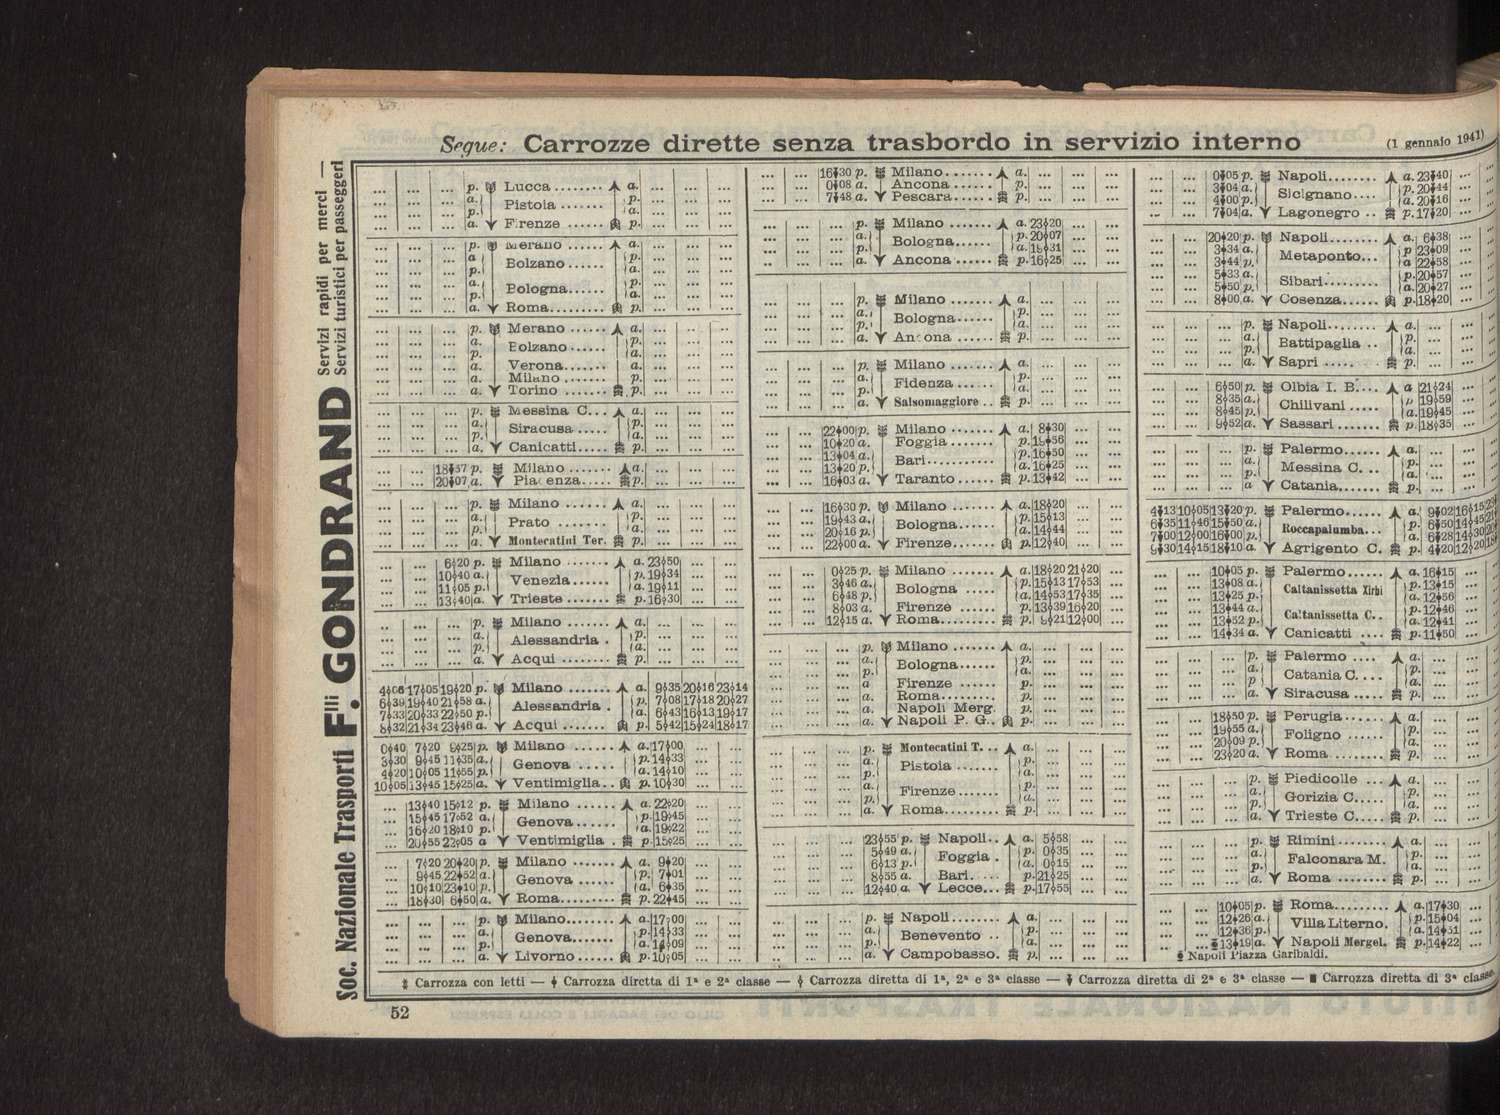 Segue: Carrozze dirette senza trasbordo in servizio interno (1 gennaio 1941)
Soc. Nazionale Trasporti F.lli GONDRAND Servizi rapidi per merci — Servizi turistici per passeggeri
p. Lucca ........ a.
a. p. Pistoia ....... p. a.
a. Firenze ...... p.
p. Merano ...... a.
a. p. Bolzano ...... p. a.
a. p. Bologna ...... p. a.
a. Roma ......... p.
p. Merano ...... a.
a. p. Bolzano ...... p. a.
a. Verona ....... p.
a. Milano ....... p.
a. Torino ....... p.
p. Messina C... a.
a. p. Siracusa ..... p. a.
a. Canicatti ..... p.
18 57 p. Milano ....... a.
20 07 a. Piacenza ..... p.
p. Milano ....... a.
a. p. Prato ....... p. a.
a. Montecatini Ter. p.
6 20 p. Milano ....... a. 23 50
10 40 a. Venezia ...... p. 19 34
11 05 p. a. 19 11
13 40 a. Trieste ...... p. 16 30
p. Milano ....... a.
a. p. Alessandria . p. a.
a. Acqui ........ p.
4 06 17 05 19 20 p. Milano ....... a. 9 35 20 16 23 14
6 39 19 40 21 58 a. Alessandria . p. 7 08 17 18 20 27
7 33 20 33 22 50 p. a. 6 43 16 13 19 17
8 32 21 34 23 46 a. Acqui ........ p. 5 42 15 24 18 17
0 40 7 20 9 25 p. Milano ....... a. 17 00
3 30 9 45 11 35 a. Genova ...... p. 14 33
4 20 10 05 11 55 p. a. 14 10
10 05 13 45 15 25 a. Ventimiglia .. p. 10 30
13 40 15 12 p. Milano ....... a. 22 20
15 45 17 52 a. Genova ....... p. 19 45
16 20 18 10 p. a. 19 22
20 55 22 05 a Ventimiglia . p. 15 25
7 20 20 20 p. Milano ....... a. 9 20
9 45 22 52 a. Genova ...... p. 7 01
10 10 23 10 p. a. 6 35
18 30 6 50 a. Roma ......... p. 22 45
p. Milano ....... a. 17 00
a. Genova ....... p. 14 33
p. a. 14 09
a. Livorno ...... p. 10 05
16 30 p. Milano ....... a.
0 08 a. Ancona ...... p.
7 48 a. Pescara ...... p.
p. Milano ....... a. 23 20
a. Bologna ...... p. 20 07
p. a. 19 31
a. Ancona ...... p. 16 25
p. Milano ....... a.
a. p. Bologna ...... p. a.
a. Ancona ...... p.
p. Milano ....... a.
a. p. Fidenza ...... p. a.
a. Salsomaggiore .. p.
22 00 p. Milano ...... a. 8 30
10 20 a. Foggia ...... p. 19 56
13 04 a. Bari .......... p. 16 50
13 20 p. a. 16 25
16 03 a. Taranto ...... p. 13 42
16 30 p. Milano ...... a. 18 20
19 43 a. Bologna ...... p. 15 13
20 16 p. a. 14 44
22 00 a. Firenze ...... p. 12 40
0 25 p. Milano ...... a. 18 20 21 20
3 46 a. Bologna ..... p. 15 13 17 53
6 48 p. a. 14 53 17 35
8 03 a. Firenze ...... p. 13 39 16 20
12 15 a. Roma ........ p. 9 21 12 00
p. Milano ...... a.
a. p. Bologna ...... p. a.
a Firenze ...... p.
a. Roma ......... p.
a. Napoli Merg. p.
a. Napoli P. G.. p.
p. Montecatini T. .. a.
a. p. Pistoia ...... p. a.
a. p. Firenze ...... p. a.
a. Roma ......... p.
23 55 p. Napoli .. a. 5 58
5 49 a. Foggia . p. 0 35
6 13 p. a. 0 15
8 55 a. Bari .... p. 21 25
12 40 a. Lecce ... p. 17 55
p. Napoli ........ a.
a. p. Benevento .. p. a.
a. Campobasso. p.
0 05 p. Napoli ........ a. 23 40
3 04 a. Sicignano .... p. 20 44
4 00 p. a. 20 16
7 04 a. Lagonegro .. p. 17 20
20 20 p. Napoli ........ a. 6 38
3 34 a. Metaponto ... p 23 09
3 44 p. a 22 58
5 33 a. Sibari ....... p. 20 57
5 50 p. a. 20 27
8 00 a. Cosenza ...... p. 18 20
p. Napoli ........ a.
a. p. Battipaglia .. p. a.
a. Sapri ........ p.
6 50 p. Olbia I. B.... a 21 24
8 35 a. Chilivani ..... p 19 59
8 45 p. a. 19 45
9 52 a. Sassari ....... p. 18 35
p. Palermo ...... a.
a. p. Messina C. .. p. a.
a Catania ....... p.
4 13 10 05 13 20 p. Palermo ...... a. 9 02 16 15
6 35 11 46 15 50 a. Roccapalumba ... p. 6 50 14 45
7 00 12 00 16 00 p. a. 6 28 14 30
9 30 14 15 18 10 a. Agrigento C. p. 4 20 12 20
10 05 p. Palermo ...... a. 16 15
13 08 a. Caltanissetta Xirbi p. 13 15
13 25 p. a. 12 56
13 44 a. Caltanissetta C. . p. 12 46
13 52 p. a. 12 41
14 34 a. Canicatti .... p. 11 50
p. Palermo .... a.
a. p Catania C. ... p. a.
a. Siracusa ..... p.
18 50 p. Perugia ...... a.
19 55 a. Foligno ...... p.
20 09 p. a.
23 20 a. Roma ........ p.
p. Piedicolle ... a.
a. p. Gorizia C. .... p. a.
a. Trieste C. .... p.
p. Rimini ....... a.
a. p. Falconara M. p. a.
a. Roma ........ p.
10 05 p. Roma ........ a. 17 30
12 26 a. Villa Literno. p. 15 04
12 36 p. a. 14 51
13 19 a. Napoli Mergel. p. 14 22
Napoli Piazza Garibaldi.
Carrozza con letti — Carrozza diretta di 1ª e 2ª classe — Carrozza diretta di 1ª, 2ª e 3ª classe — Carrozza diretta di 2ª e 3ª classe — Carrozza diretta di 3ª classe.
52